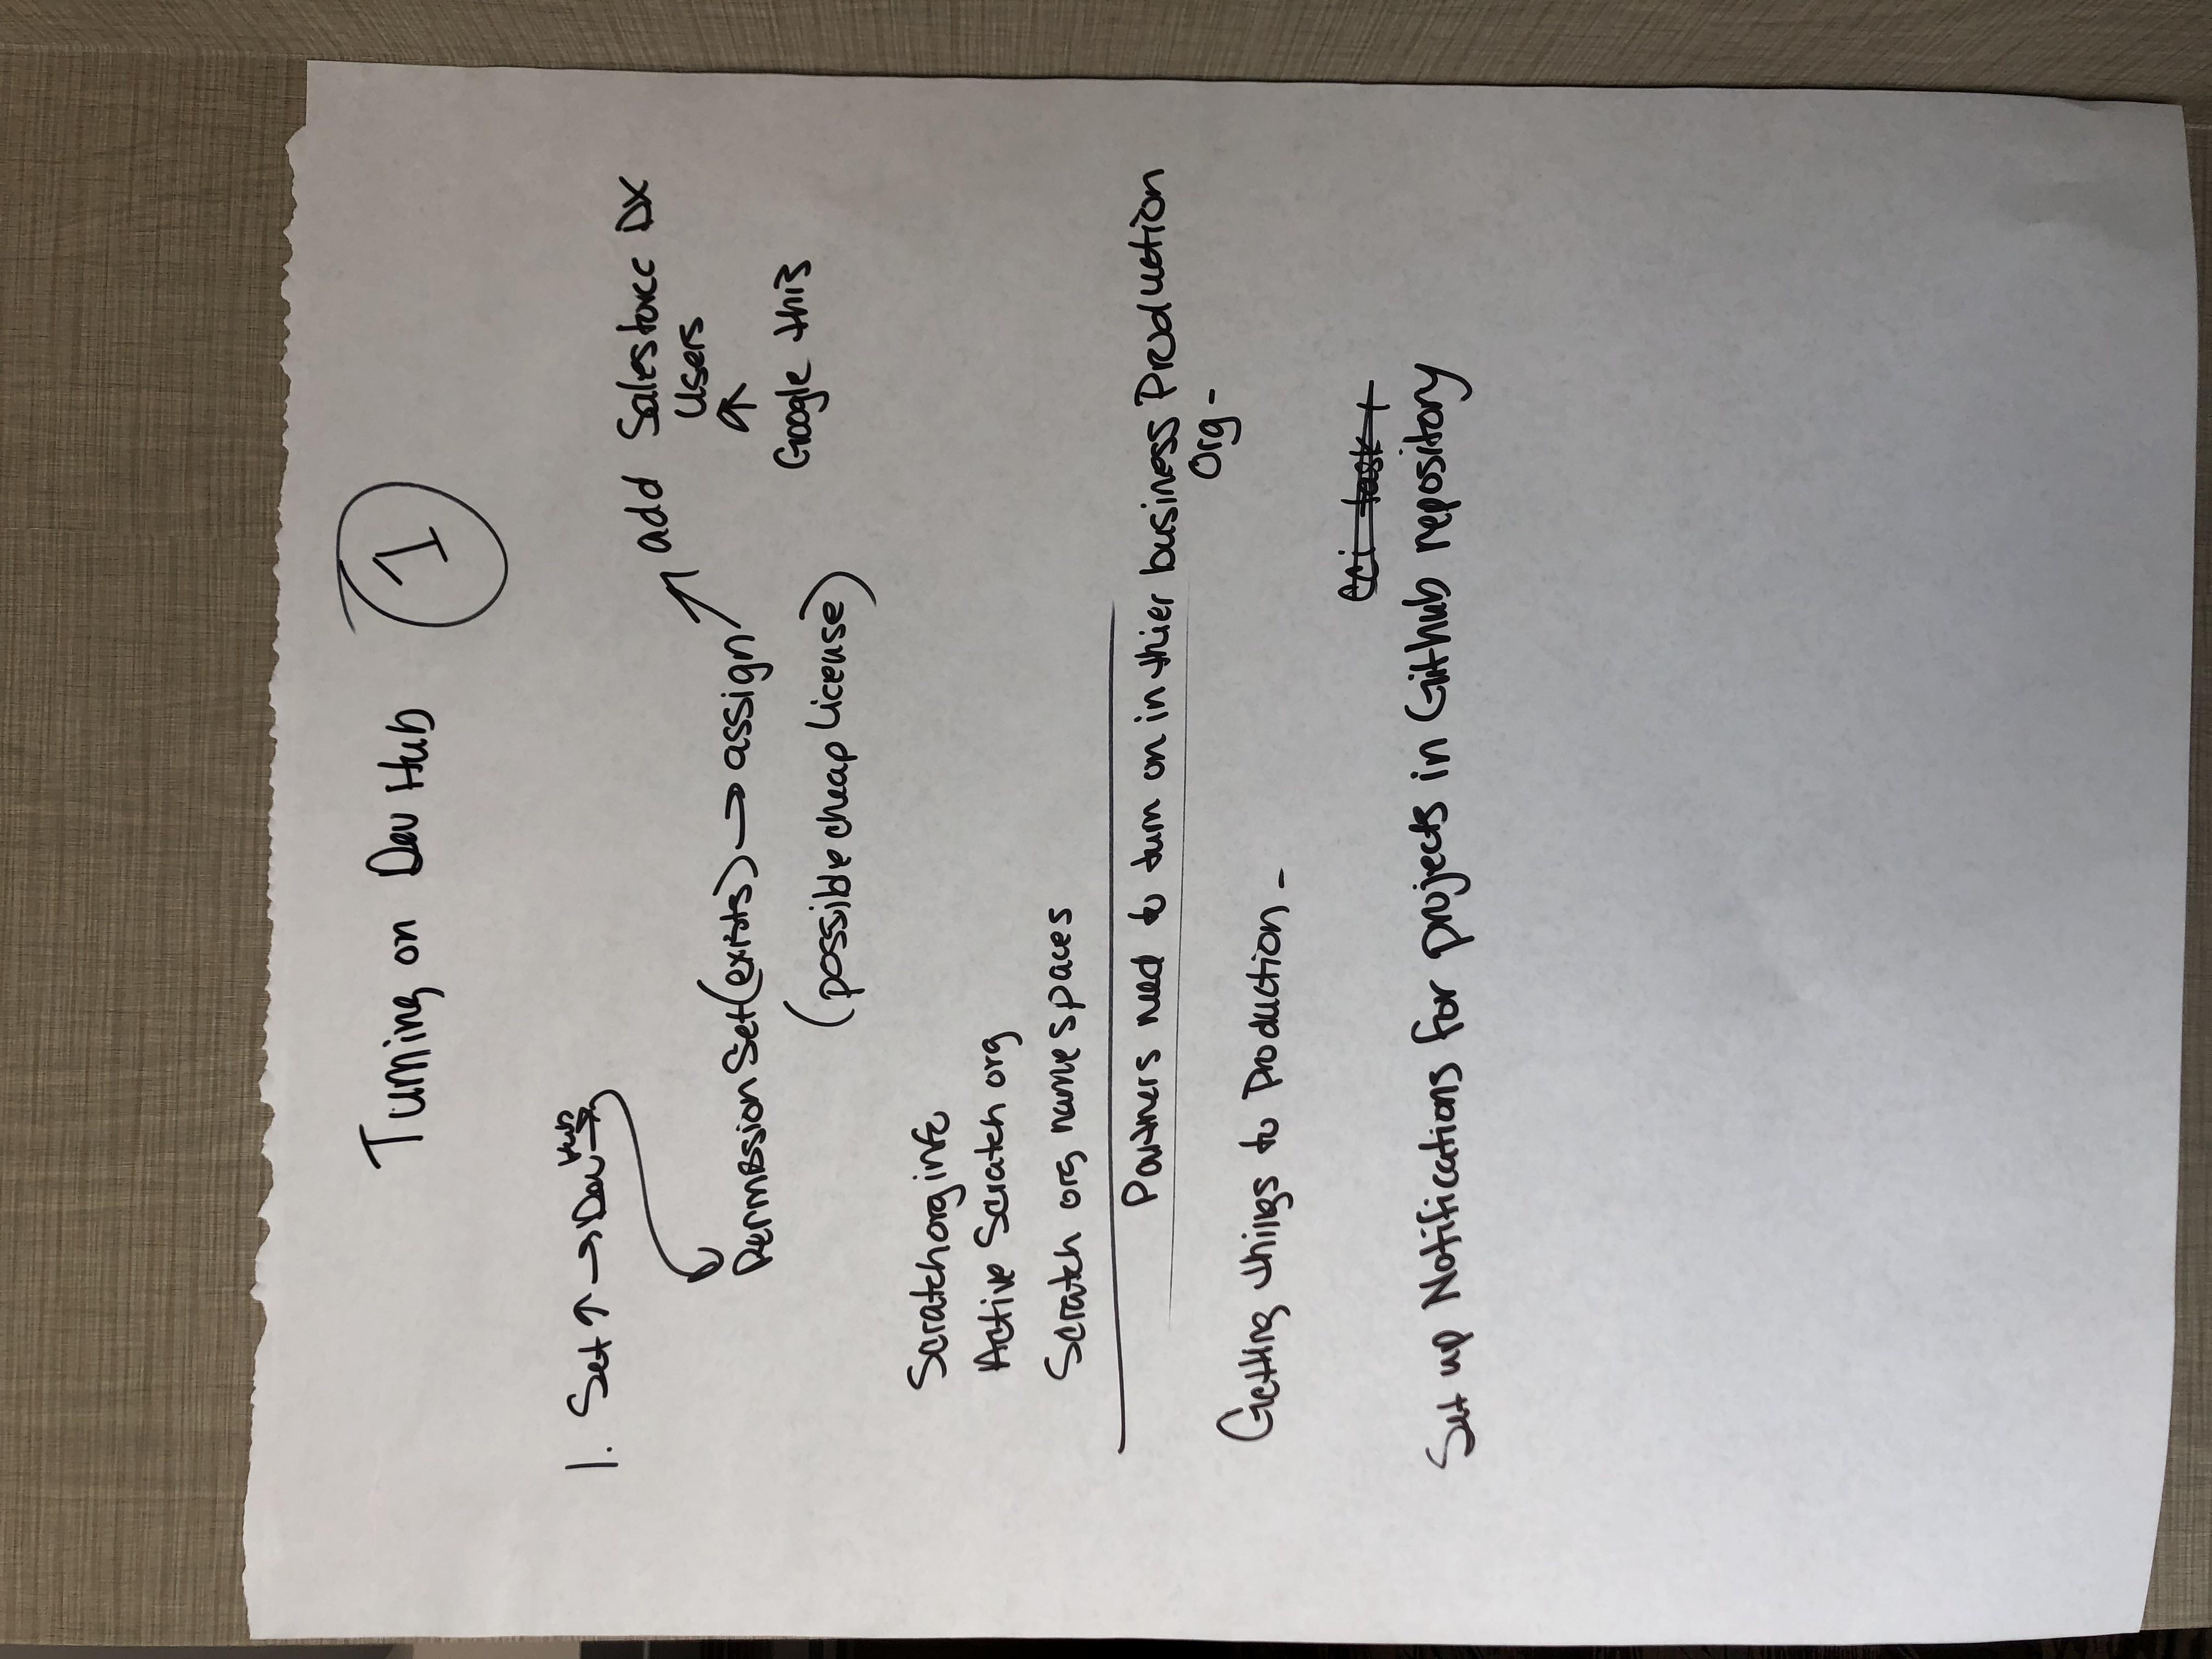 Turning on Dev Hub 1
1. Set ↑ → Dev Hub →
add Salesforce DX
Users
Permission Set (exists) → assign
Google this
(possible cheap License)
Scratch org info
Active Scratch org
Scratch org namespaces
Partners need to turn on in thier business Production
Org -
Getting things to Production -
cci task
Set up Notifications for projects in Github repository